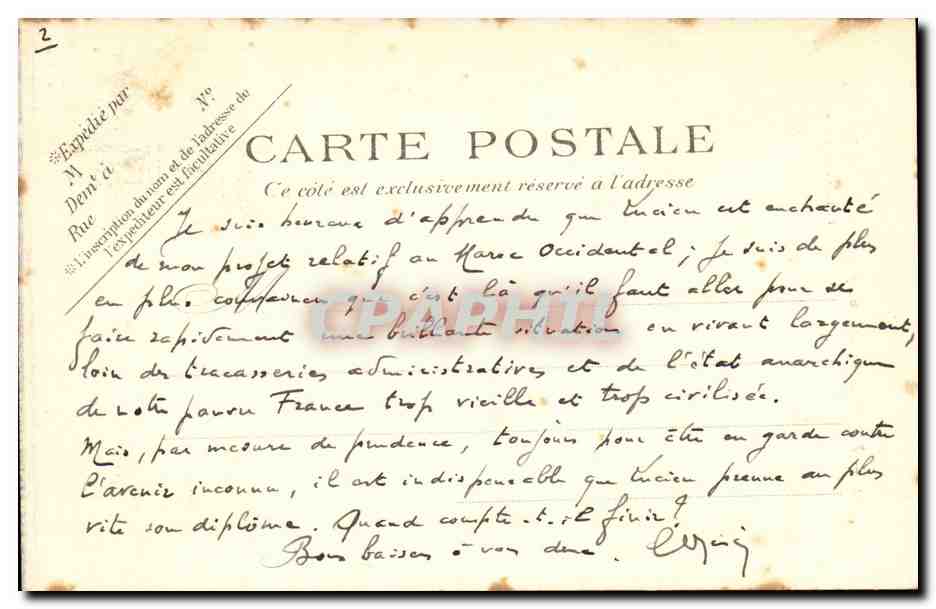 2
※Expédié par
M
Demt à
Rue
No
※L'inscription du nom et de l'adresse de
l'expéditeur est facultative
CARTE POSTALE
Ce côté est exclusivement réservé a l'adresse
Je suis heureux d'apprendre que Lucien est enchanté
de mon projet relatif au Maroc Occidental ; Je suis de plus
en plus convaincu que c'est là qu'il faut aller pour se
faire rapidement une brillante situation en vivant largement,
loin des tracasseries administratives et de l'état anarchique
de notre pauvre France trop vieille et trop civilisée.
Mais, par mesure de prudence, toujours pour être en garde contre
l'avenir inconnu, il est indispensable que Lucien prenne au plus
vite son diplôme. Quand compte-t-il finir ?
Bons baisers à vous deux.
CPAPHIL